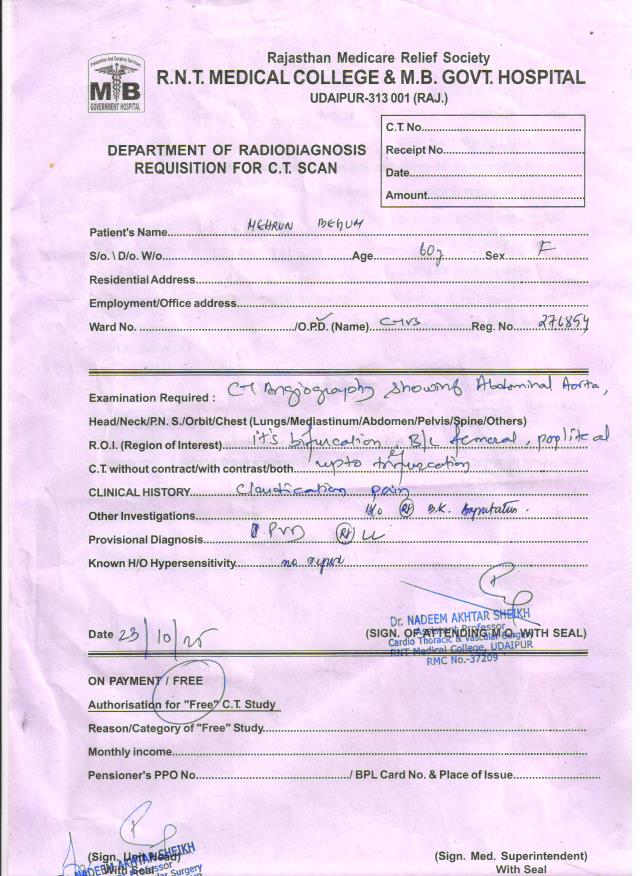 Rajasthan Medicare Relief Society
R.N.T. MEDICAL COLLEGE & M.B. GOVT. HOSPITAL
UDAIPUR-313 001 (RAJ.)
Preventive And Curative Services
MB
GOVERNMENT HOSPITAL
C.T. No.
Receipt No.
Date
Amount
DEPARTMENT OF RADIODIAGNOSIS
REQUISITION FOR C.T. SCAN
Patient's Name MEHRUN BEGUM
S/o. \ D/o. W/o Age 60y Sex F
Residential Address
Employment/Office address
Ward No. /O.P.D. (Name) CTVS Reg. No. 276854
Examination Required : CT Angiography showing Abdominal Aorta,
Head/Neck/P.N. S./Orbit/Chest (Lungs/Mediastinum/Abdomen/Pelvis/Spine/Others)
R.O.I. (Region of Interest) it's bifurcation, B/L femoral, popliteal
C.T. without contract/with contrast/both upto trifurcation
CLINICAL HISTORY Claudication pain
Other Investigations H/o Rt B.K. Amputation.
Provisional Diagnosis PVD Rt LL
Known H/O Hypersensitivity no
Dr. NADEEM AKHTAR SHEIKH
Assistant Professor
Date 23/10/25 (SIGN. OF ATTENDING M.O. WITH SEAL)
Cardio Thoracic & Vascular Surgery
RNT Medical College, UDAIPUR
RMC No.-37209
ON PAYMENT / FREE
Authorisation for "Free" C.T. Study
Reason/Category of "Free" Study
Monthly income
Pensioner's PPO No. / BPL Card No. & Place of Issue
(Sign. Unit Head) (Sign. Med. Superintendent)
NADEEM AKHTAR SHEIKH
With Seal With Seal